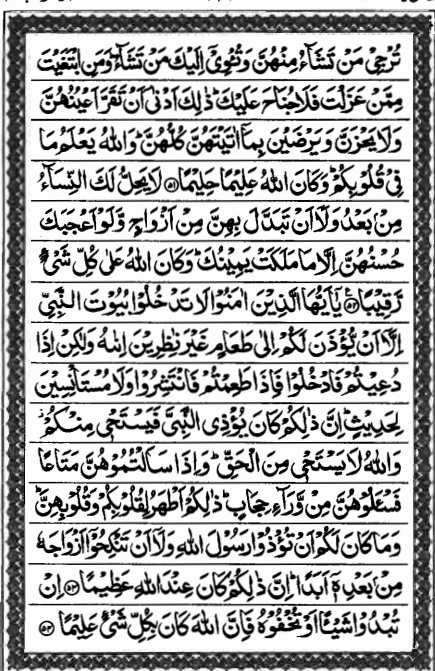 تُرْجِیْ مَنْ تَشَآءُ مِنْهُنَّ وَتُـْٔوِیْۤ اِلَیْكَ مَنْ تَشَآءُ ؕ وَمَنِ ابْتَغَیْتَ
مِمَّنْ عَزَلْتَ فَلَا جُنَاحَ عَلَیْكَ ؕ ذٰلِكَ اَدْنٰۤی اَنْ تَقَرَّ اَعْیُنُهُنَّ
وَلَا یَحْزَنَّ وَیَرْضَیْنَ بِمَاۤ اٰتَیْتَهُنَّ كُلُّهُنَّ ؕ وَاللّٰهُ یَعْلَمُ مَا
فِیْ قُلُوْبِكُمْ ؕ وَكَانَ اللّٰهُ عَلِیْمًا حَلِیْمًا ﴿۵۱﴾ لَا یَحِلُّ لَكَ النِّسَآءُ
مِنْۢ بَعْدُ وَلَاۤ اَنْ تَبَدَّلَ بِهِنَّ مِنْ اَزْوَاجٍ وَّلَوْ اَعْجَبَكَ
حُسْنُهُنَّ اِلَّا مَا مَلَكَتْ یَمِیْنُكَ ؕ وَكَانَ اللّٰهُ عَلٰی كُلِّ شَیْءٍ
رَّقِیْبًا ﴿۵۲﴾ یٰۤاَیُّهَا الَّذِیْنَ اٰمَنُوْا لَا تَدْخُلُوْا بُیُوْتَ النَّبِیِّ
اِلَّاۤ اَنْ یُّؤْذَنَ لَكُمْ اِلٰی طَعَامٍ غَیْرَ نٰظِرِیْنَ اِنٰىهُ وَلٰكِنْ اِذَا
دُعِیْتُمْ فَادْخُلُوْا فَاِذَا طَعِمْتُمْ فَانْتَشِرُوْا وَلَا مُسْتَاْنِسِیْنَ
لِحَدِیْثٍ ؕ اِنَّ ذٰلِكُمْ كَانَ یُؤْذِی النَّبِیَّ فَیَسْتَحْیٖ مِنْكُمْ ؗ
وَاللّٰهُ لَا یَسْتَحْیٖ مِنَ الْحَقِّ ؕ وَاِذَا سَاَلْتُمُوْهُنَّ مَتَاعًا
فَسْـَٔلُوْهُنَّ مِنْ وَّرَآءِ حِجَابٍ ؕ ذٰلِكُمْ اَطْهَرُ لِقُلُوْبِكُمْ وَقُلُوْبِهِنَّ ؕ
وَمَا كَانَ لَكُمْ اَنْ تُؤْذُوْا رَسُوْلَ اللّٰهِ وَلَاۤ اَنْ تَنْكِحُوْۤا اَزْوَاجَهٗ
مِنْۢ بَعْدِهٖۤ اَبَدًا ؕ اِنَّ ذٰلِكُمْ كَانَ عِنْدَ اللّٰهِ عَظِیْمًا ﴿۵۳﴾ اِنْ
تُبْدُوْا شَیْـًٔا اَوْ تُخْفُوْهُ فَاِنَّ اللّٰهَ كَانَ بِكُلِّ شَیْءٍ عَلِیْمًا ﴿۵۴﴾